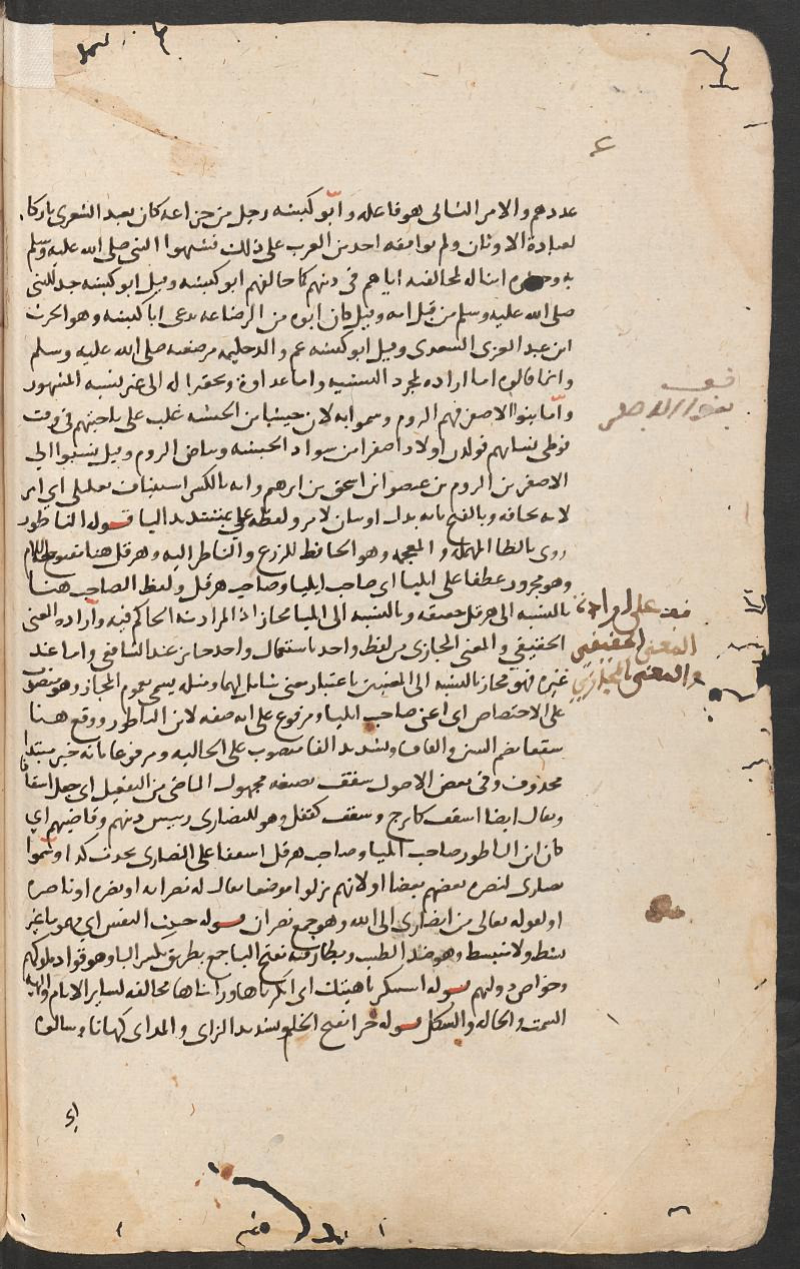 عددهم والامر الشانى هو فاعله وابو كبشه رجل من خزاعه كان يعبد الشعرى تاركا
لعبادة الاوثان ولم يوافقه احد من العرب على ذلك فشبهوا النبي صلى الله عليه وسلم
به وجعلوه ابنا له لمخالفته اياهم فى دينهم كما خالفهم ابو كبشه وقيل ابو كبشه جد للنبى
صلى الله عليه وسلم من قبل امه وقيل كان ابوه من الرضاعه يدعى ابا كبشه وهو الحرث
ابن عبد العزى السعدى وقيل ابو كبشه عم والد حليمه مرضعته صلى الله عليه وسلم
وانما قالوه اما اراده لمجرد التشبيه واما عداوة وتحقيرا له الى غير نسبه المشهور
واما بنوا الاصفر فهم الروم وسموا به لان جيشا من الحبشه غلب على ناحيتهم فى وقت
فوطى نسائهم فولدن اولادا صفرا من سواد الحبشه وبياض الروم وقيل ينسبوا الى
الاصفر بن الروم بن عيصو بن اسحق بن ابرهيم وانه بالكسر استيناف تعليلى اى امر
لانه يخافه وبالفتح بانه بدل او بيان لامر ولفظه على بتشديد اليا قوله الناطور
روى بالطا المهمله و المعجمه وهو الحافظ للزرع والناظر اليه وهرقل هنا مفتوح اللام
وهو مجرور عطفا على ايليا اى صاحب ايليا وصاحب هرقل ولفظ الصاحب هنا
بالنسبه الى هرقل حقيقه وبالنسبه الى ايليا مجاز اذ المراد منه الحاكم فيه وارادة المعنى
الحقيقي والمعنى المجازى من لفظ واحد باستعمال واحد جايز عند الشافعى واما عند
غيره فهو مجاز بالنسبه الى المعنيين باعتبار معنى شامل لهما ومثله يسمى بعموم المجاز وهو منصوب
على الاختصاص اى اعنى صاحب ايليا ومرفوع على انه صفه لابن الناطور ووقع هنا
سقفا بضم السين والقاف وتشديد الفا منصوب على الحاليه ومرفوعا بانه خبر مبتدا
محذوف وفى بعض الاصول سقف بصيغه مجهول الماضى من التفعيل اى جعل اسقفا
ويقال ايضا اسقف كاترج وسقف كقفل وهو للنصارى رييس دينهم وقاضيهم اي
كان ابن الناطور صاحب ايليا وصاحب هرقل اسقفا على النصارى يحدث كذا وسموا
نصارى لنصره بعضهم بعضا او لانهم نزلوا موضعا يقال له نصرانه او نصره او ناصره
او لقوله تعالى من انصارى الى الله وهو جمع نصران قوله خبيث النفس اي مهموما غير
نشط ولا منبسط وهو ضد الطيب وبطارقته بفتح البا جمع بطريق بكسر البا وهو قواد ملوكهم
وخواص دولهم قوله استنكرنا هيئتك اى انكرناها ورايناها مخالفه لساير الايام والهيه
السمت والحاله والشكل قوله حزا بفتح الحا وتشديد الزاى والمد اى كهانا وسالوه
قف
بنوا الاصفر
قف على ارادة
المعنى الحقيقي
والمعنى المجازي